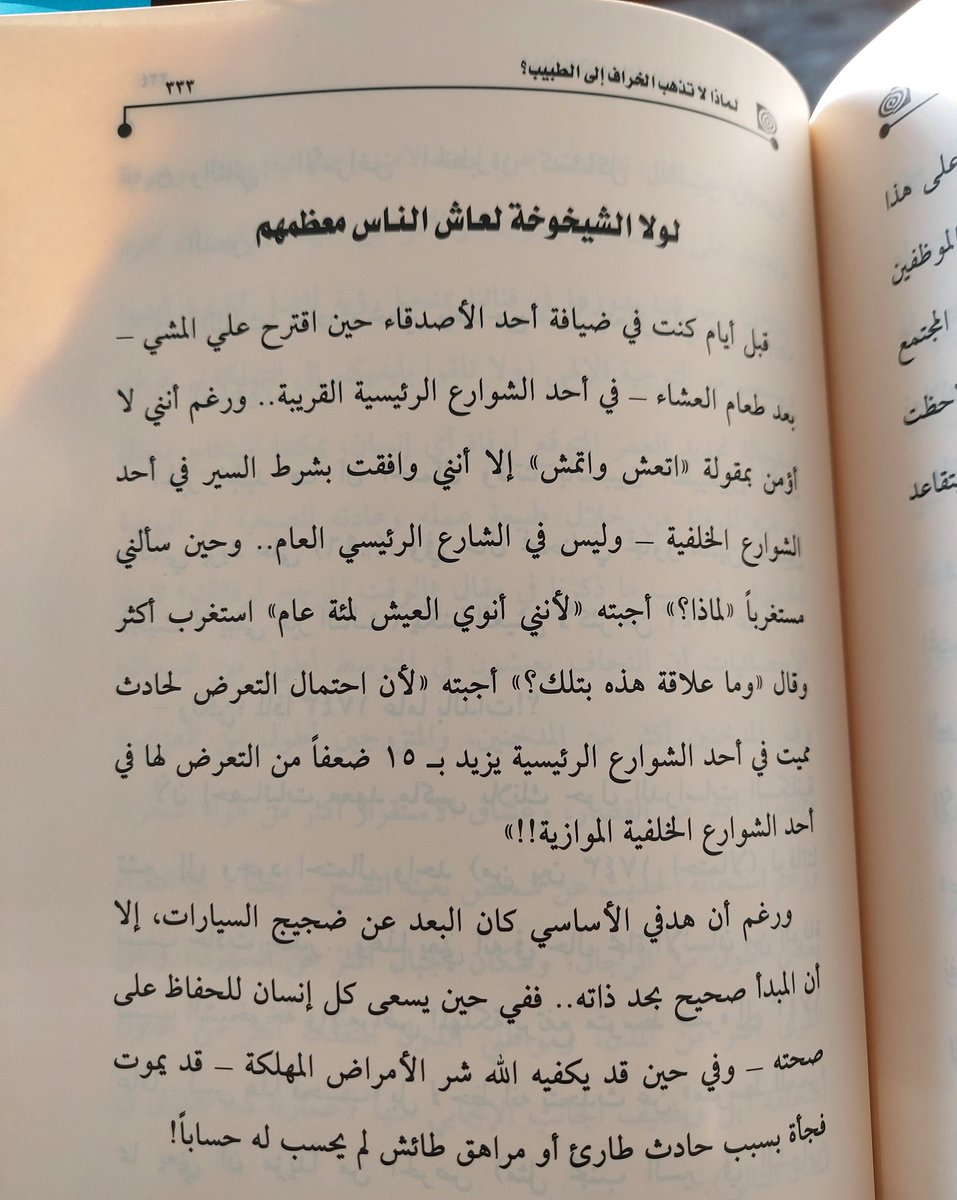 لماذا لا تذهب الخراف إلى الطبيب؟
٣٣٣
لولا الشيخوخة لعاش الناس معظمهم
قبل أيام كنت في ضيافة أحد الأصدقاء حين اقترح علي المشي –
بعد طعام العشاء – في أحد الشوارع الرئيسية القريبة.. ورغم أنني لا
أؤمن بمقولة «اتعش واتمش» إلا أنني وافقت بشرط السير في أحد
الشوارع الخلفية – وليس في الشارع الرئيسي العام.. وحين سألني
مستغرباً «لماذا؟» أجبته «لأنني أنوي العيش لمئة عام» استغرب أكثر
وقال «وما علاقة هذه بتلك؟» أجبته «لأن احتمال التعرض لحادث
مميت في أحد الشوارع الرئيسية يزيد بـ ١٥ ضعفاً من التعرض لها في
أحد الشوارع الخلفية الموازية!!»
ورغم أن هدفي الأساسي كان البعد عن ضجيج السيارات، إلا
أن المبدأ صحيح بحد ذاته.. ففي حين يسعى كل إنسان للحفاظ على
صحته – وفي حين قد يكفيه الله شر الأمراض المهلكة – قد يموت
فجأة بسبب حادث طارئ أو مراهق طائش لم يحسب له حساباً!
على هذا
الموظفين
المجتمع